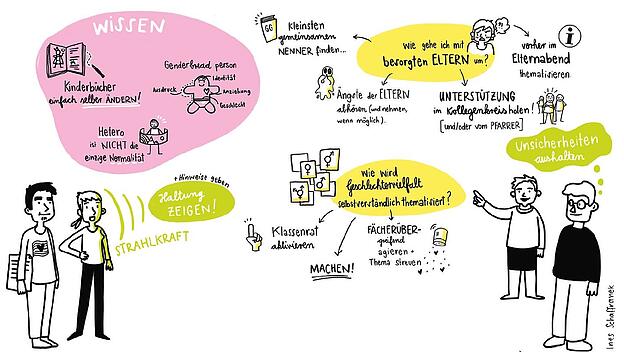 WISSEN
Kinderbücher
einfach selber ÄNDERN!
Genderbread person
Identität
Ausdruck
Anziehung
Geschlecht
Hetero
ist NICHT die
einzige Normalität
GG
Kleinsten
gemeinsamen
NENNER finden...
Wie gehe ich mit
besorgten ELTERN um?
vorher im
Elternabend
thematisieren
i
Ängste der ELTERN
abholen (und nehmen,
wenn möglich).
UNTERSTÜTZUNG
im Kollegenkreis holen!
[und/oder vom PFARRER]
Unsicherheiten
aushalten
+ Hinweise geben
Haltung
ZEIGEN!
STRAHLKRAFT
Wie wird
Geschlechtervielfalt
selbstverständlich thematisiert?
Klassenrat
aktivieren
MACHEN!
FÄCHERÜBER-
greifend
agieren +
Thema streuen
Ines Schaffranek